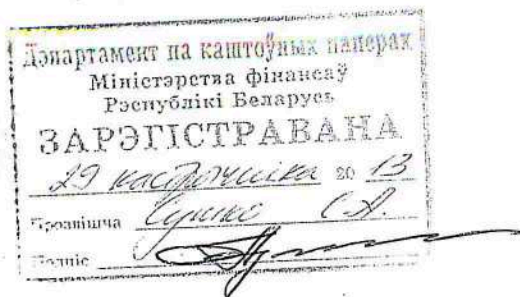 Дэпартамент па каштоўных паперах
Міністэрства фінансаў
Рэспублікі Беларусь
ЗАРЭГІСТРАВАНА
29 кастрычніка 20 13
Прозвішча С.А.
Подпіс